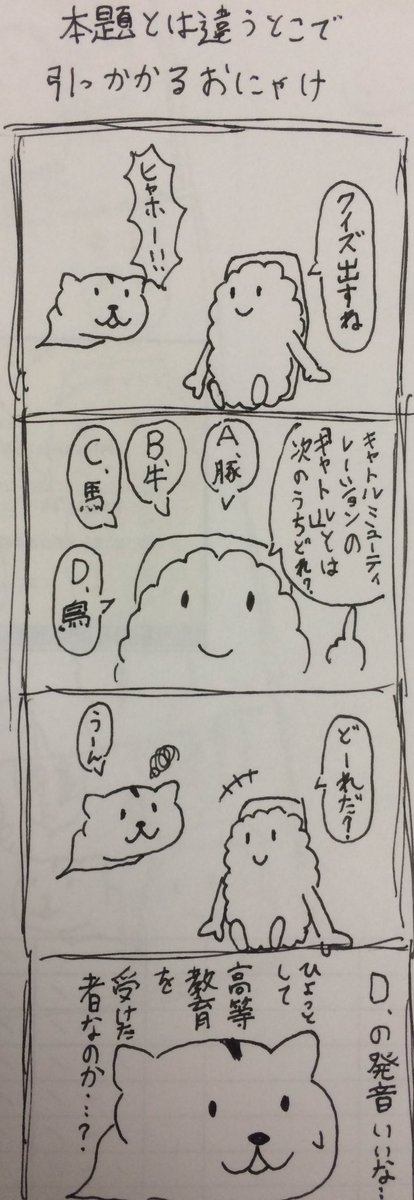 本題とは違うとこで
引っかかるおにゃけ
クイズ出すね
ヒャホー!!
キャトルミューティ
レーションの
「キャトル」とは
次のうちどれ?
A.豚
B.牛
C.馬
D.鳥
どーれだ?
うーん
D.の発音いいな…
ひょっと
して
高等
教育
を
受けた
者なのか…?